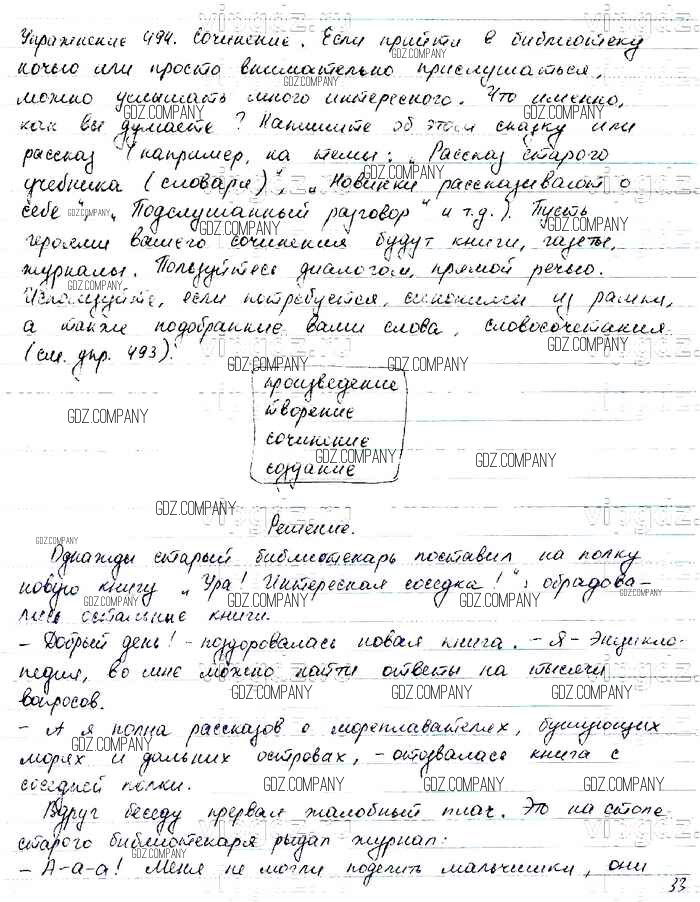 Упражнение 494. Сочинение. Если прийти в библиотеку
ночью или просто внимательно прислушаться,
можно услышать много интересного. Что именно,
как вы думаете? Напишите об этом сказку или
рассказ (например, на темы: „Рассказ старого
учебника (словаря)", „Новинки рассказывают о
себе", „Подслушанный разговор" и т.д.). Пусть
героями вашего сочинения будут книги, газеты,
журналы. Пользуйтесь диалогом, прямой речью.
Используйте, если потребуется, синонимы из рамки,
а также подобранные вами слова, словосочетания
(см. упр. 493).
произведение
творение
сочинение
создание
Решение.
Однажды старый библиотекарь поставил на полку
новую книгу „Ура! Интересная соседка!": обрадова-
лись остальные книги.
– Добрый день! – поздоровалась новая книга. – Я – Энцикло-
педия, во мне можно найти ответы на тысячи
вопросов.
– А я полна рассказов о мореплавателях, бушующих
морях и дальних островах, – отозвалась книга с
соседней полки.
Вдруг беседу прервал жалобный плач. Это на столе
старого библиотекаря рыдал журнал:
– А-а-а! Меня не могли поделить мальчишки, они
33